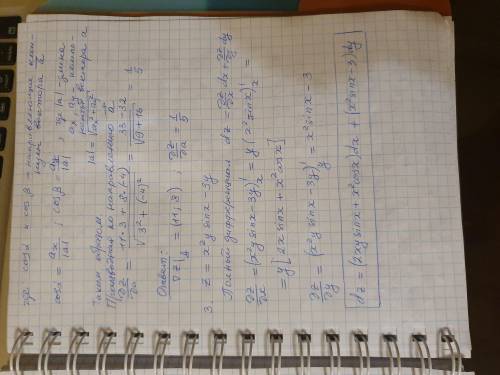 где cosα и cosβ – направляющие коси-
нусы вектора a̅
cosα = aₓ/|a| ; cosβ = a_y/|a| , где |a| - длина
aₓ, a_y - компо-
вектора a
|a| = √(aₓ² + a_y²)
Таким образом,
Производная по направлению a̅
∂z/∂a = (11·3 + 8·(-4))/√(3² + (-4)²) = (33-32)/√(9+16) = 1/5
Ответ:
∇z|_A = (11; 8) ; ∂z/∂a = 1/5
3. z = x²y sinx - 3y
Полный дифференциал dz = ∂z/∂x dx + ∂z/∂y dy
∂z/∂x = (x²y sinx - 3y)'ₓ = y(x² sinx)'ₓ =
= y[2x sinx + x² cosx]
∂z/∂y = (x²y sinx - 3y)'_y = x² sinx - 3
dz = (2xy sinx + x² cosx)dx + (x² sinx - 3)dy